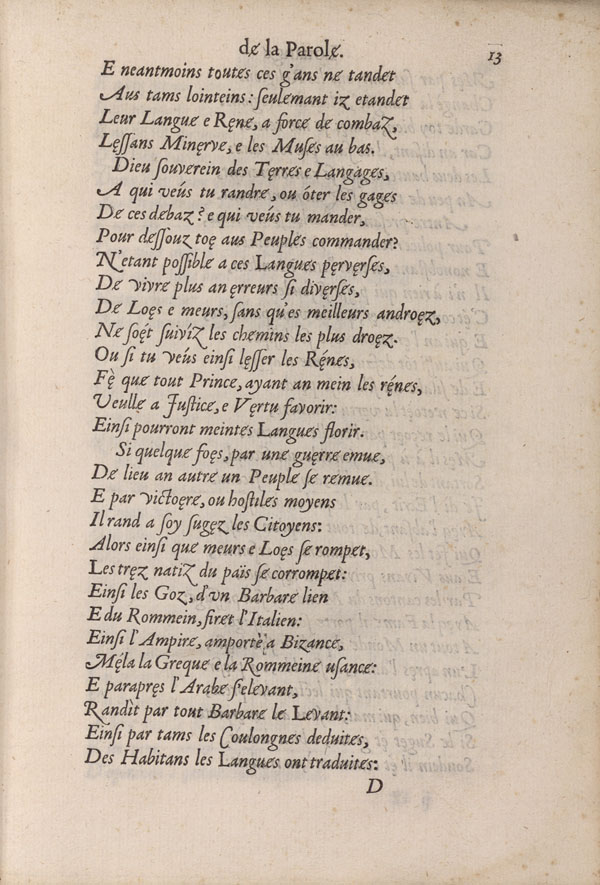 dę la Parolę.
13
E neantmoins toutes ces g'ans ne tandet
Aus tams lointeins: ſeulemant iz etandet
Leur Langue e Ręne, a force de combaz,
Lęſſans Minęrve, e les Muſes au bas.
Dieu ſouverein des Tęrres e Langages,
A qui veús tu randre, ou óter les gages
De ces debaz? e qui veús tu mander,
Pour deſſouz toę aus Peuples commander?
N'etant poſſible a ces Langues pęrvęrſes,
De vivre plus an ęrreurs ſi divęrſes,
De Loęs e meurs, ſans qu'es meilleurs androęz,
Ne ſoę́t suivíz les chemins les plus droęz.
Ou ſi tu veús einſi lęſſer les Rénes,
Fę̀ que tout Prince, ayant an mein les rénes,
Veulle a Juſtice, e Vęrtu favorir:
Einſi pourront meintes Langues florir.
Si quelque foęs, par une guęrre emue,
De lieu an autre un Peuple ſe remue.
E par victoęre, ou hoſtiles moyens
Il rand a ſoy sugęz les Citoyens:
Alors einſi que meurs e Loęs ſe rompet,
Les tręz natiz du païs ſe corrompet:
Einſi les Goz, d'vn Barbare lien
E du Rommein, firet l'Italien:
Einſi l'Ampire, amporte̍ a Bizance,
Mę́la la Greque e la Rommeine uſance:
E parapręs l'Arabe s'elevant,
Randìt par tout Barbare le Levant:
Einſi par tams les Coulongnes deduites,
Des Habitans les Langues ont traduites:
D